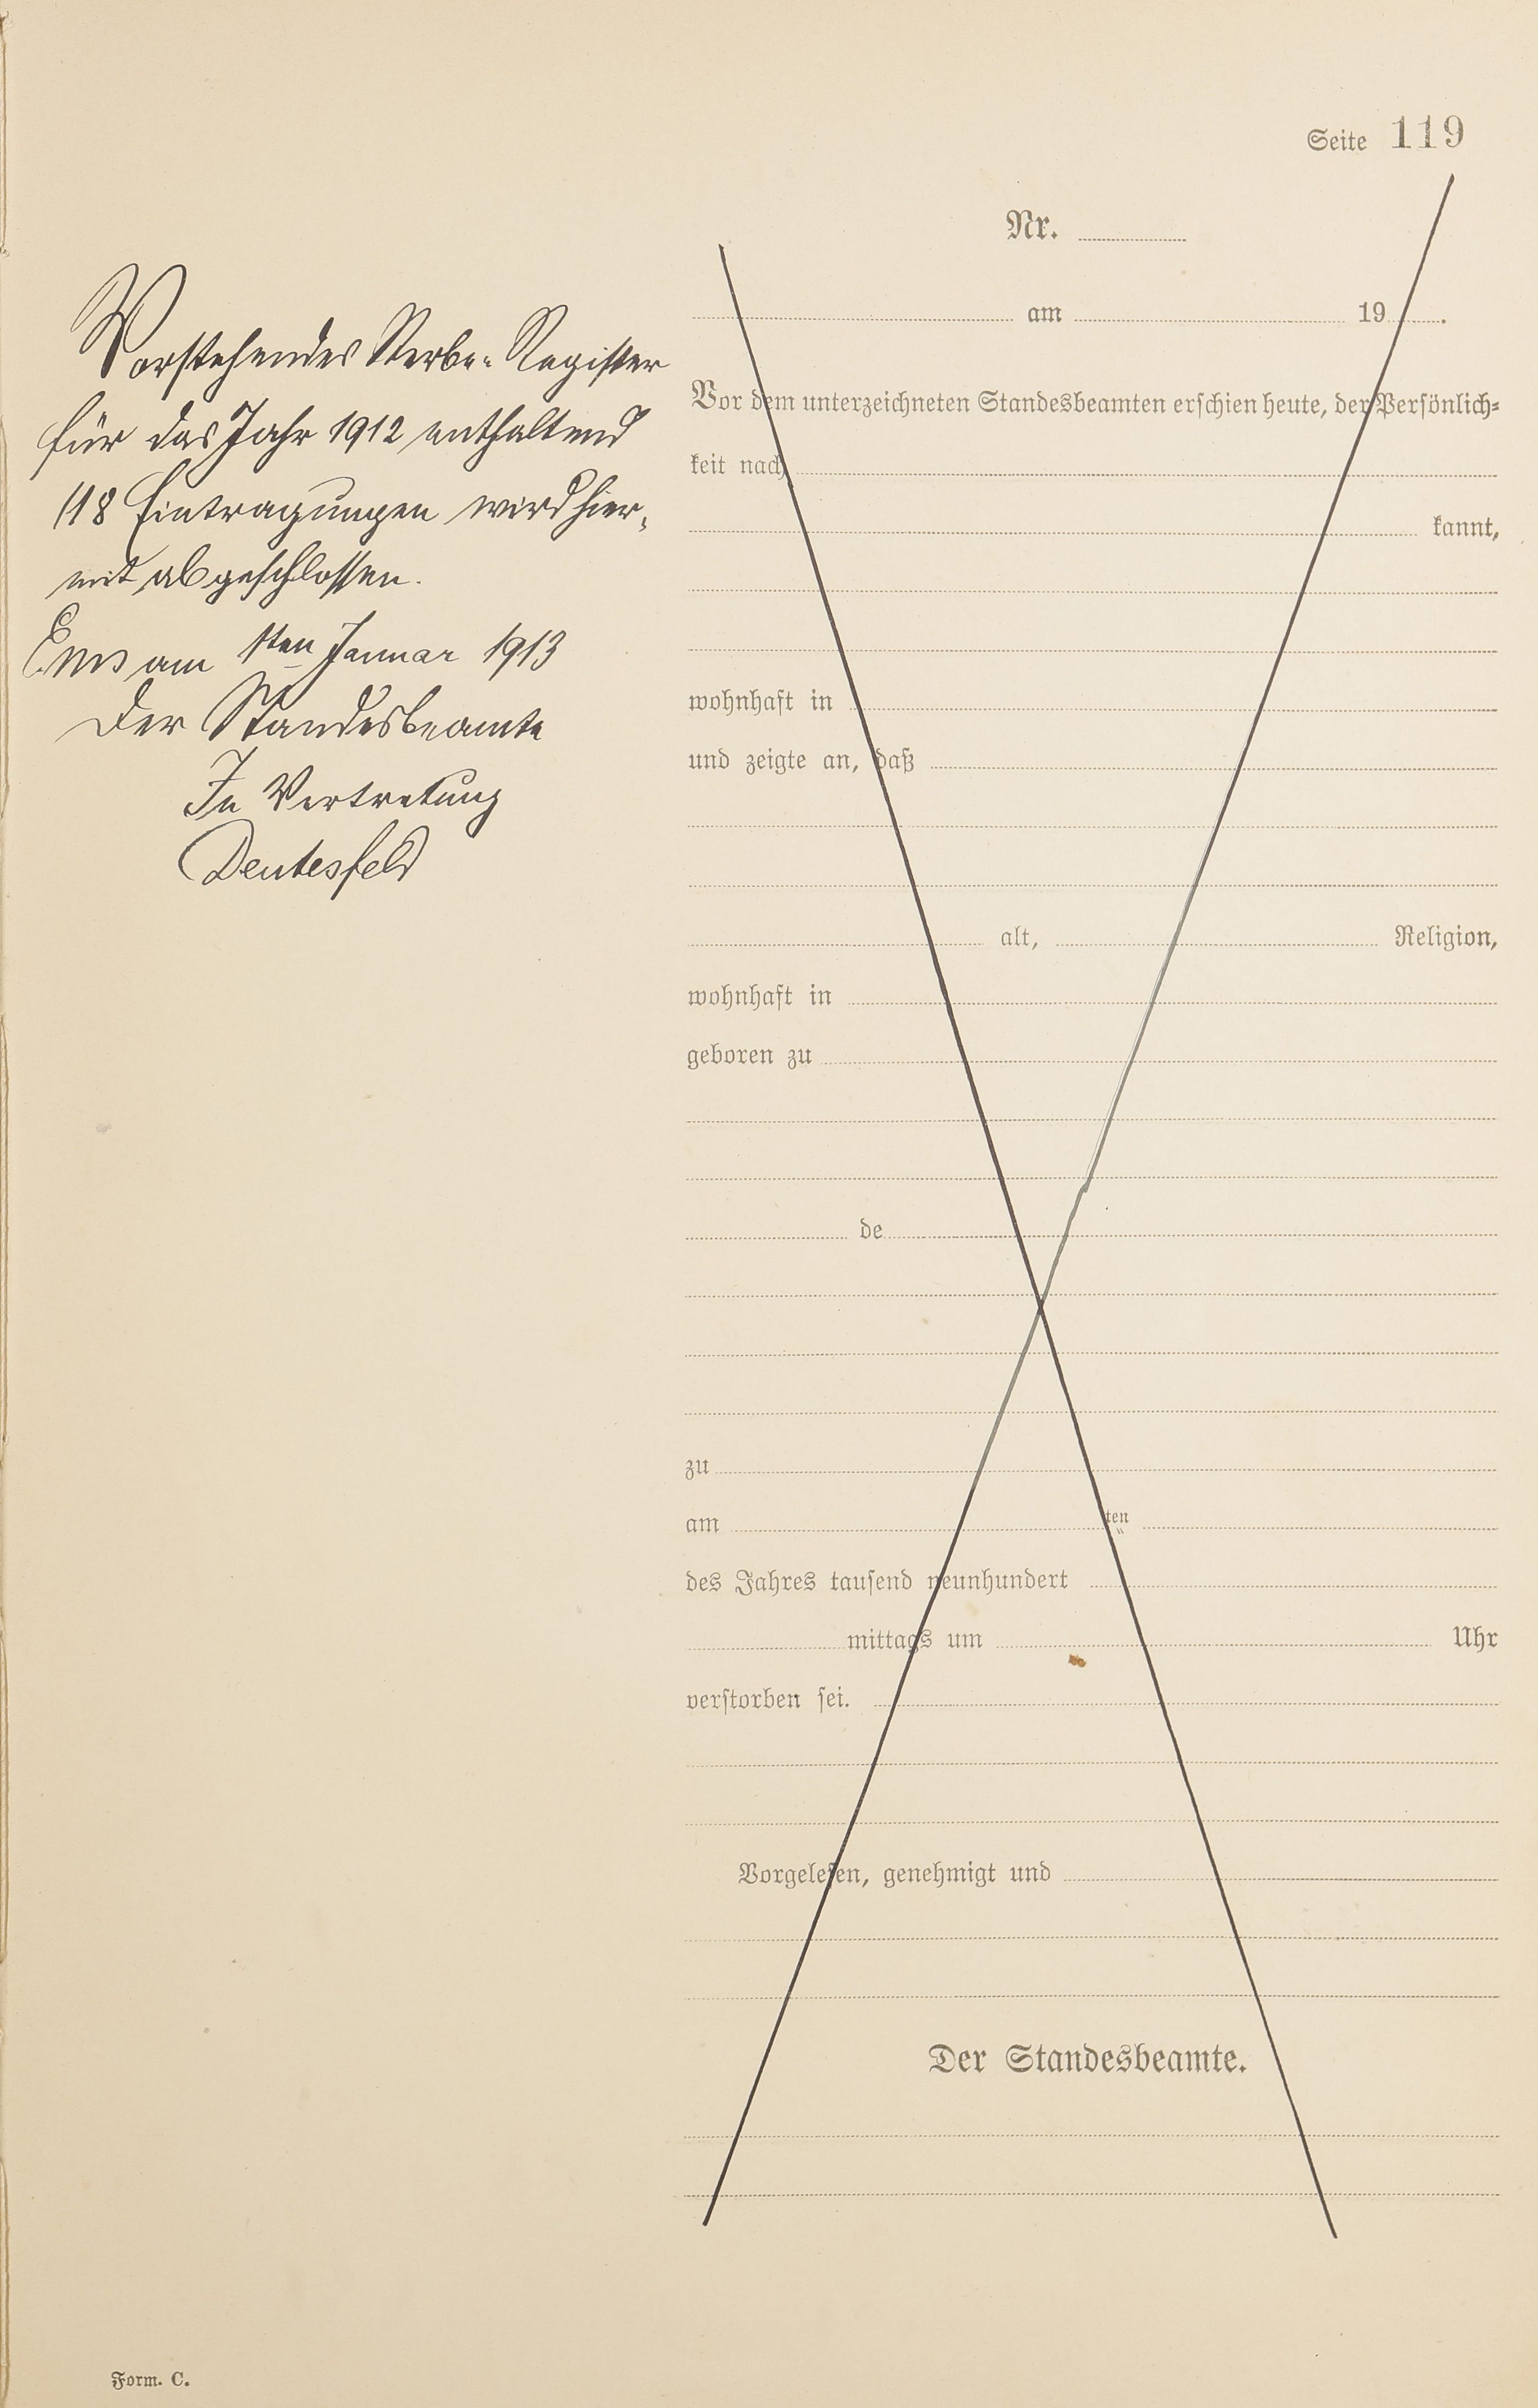 Seite 119
Vorstehendes Sterbe-Register
für das Jahr 1912 enthaltend
118 Eintragungen wird hier-
mit abgeschlossen.
Ems am 1ten Januar 1913
Der Standesbeamte
In Vertretung
Deutesfeld
Nr.
am 19 .
Vor dem unterzeichneten Standesbeamten erschien heute, der Persönlich-
keit nach
kannt,
wohnhaft in
und zeigte an, daß
alt, Religion,
wohnhaft in
geboren zu
de
zu
am ten
des Jahres tausend neunhundert
mittags um Uhr
verstorben sei.
Vorgelesen, genehmigt und
Der Standesbeamte.
Form. C.